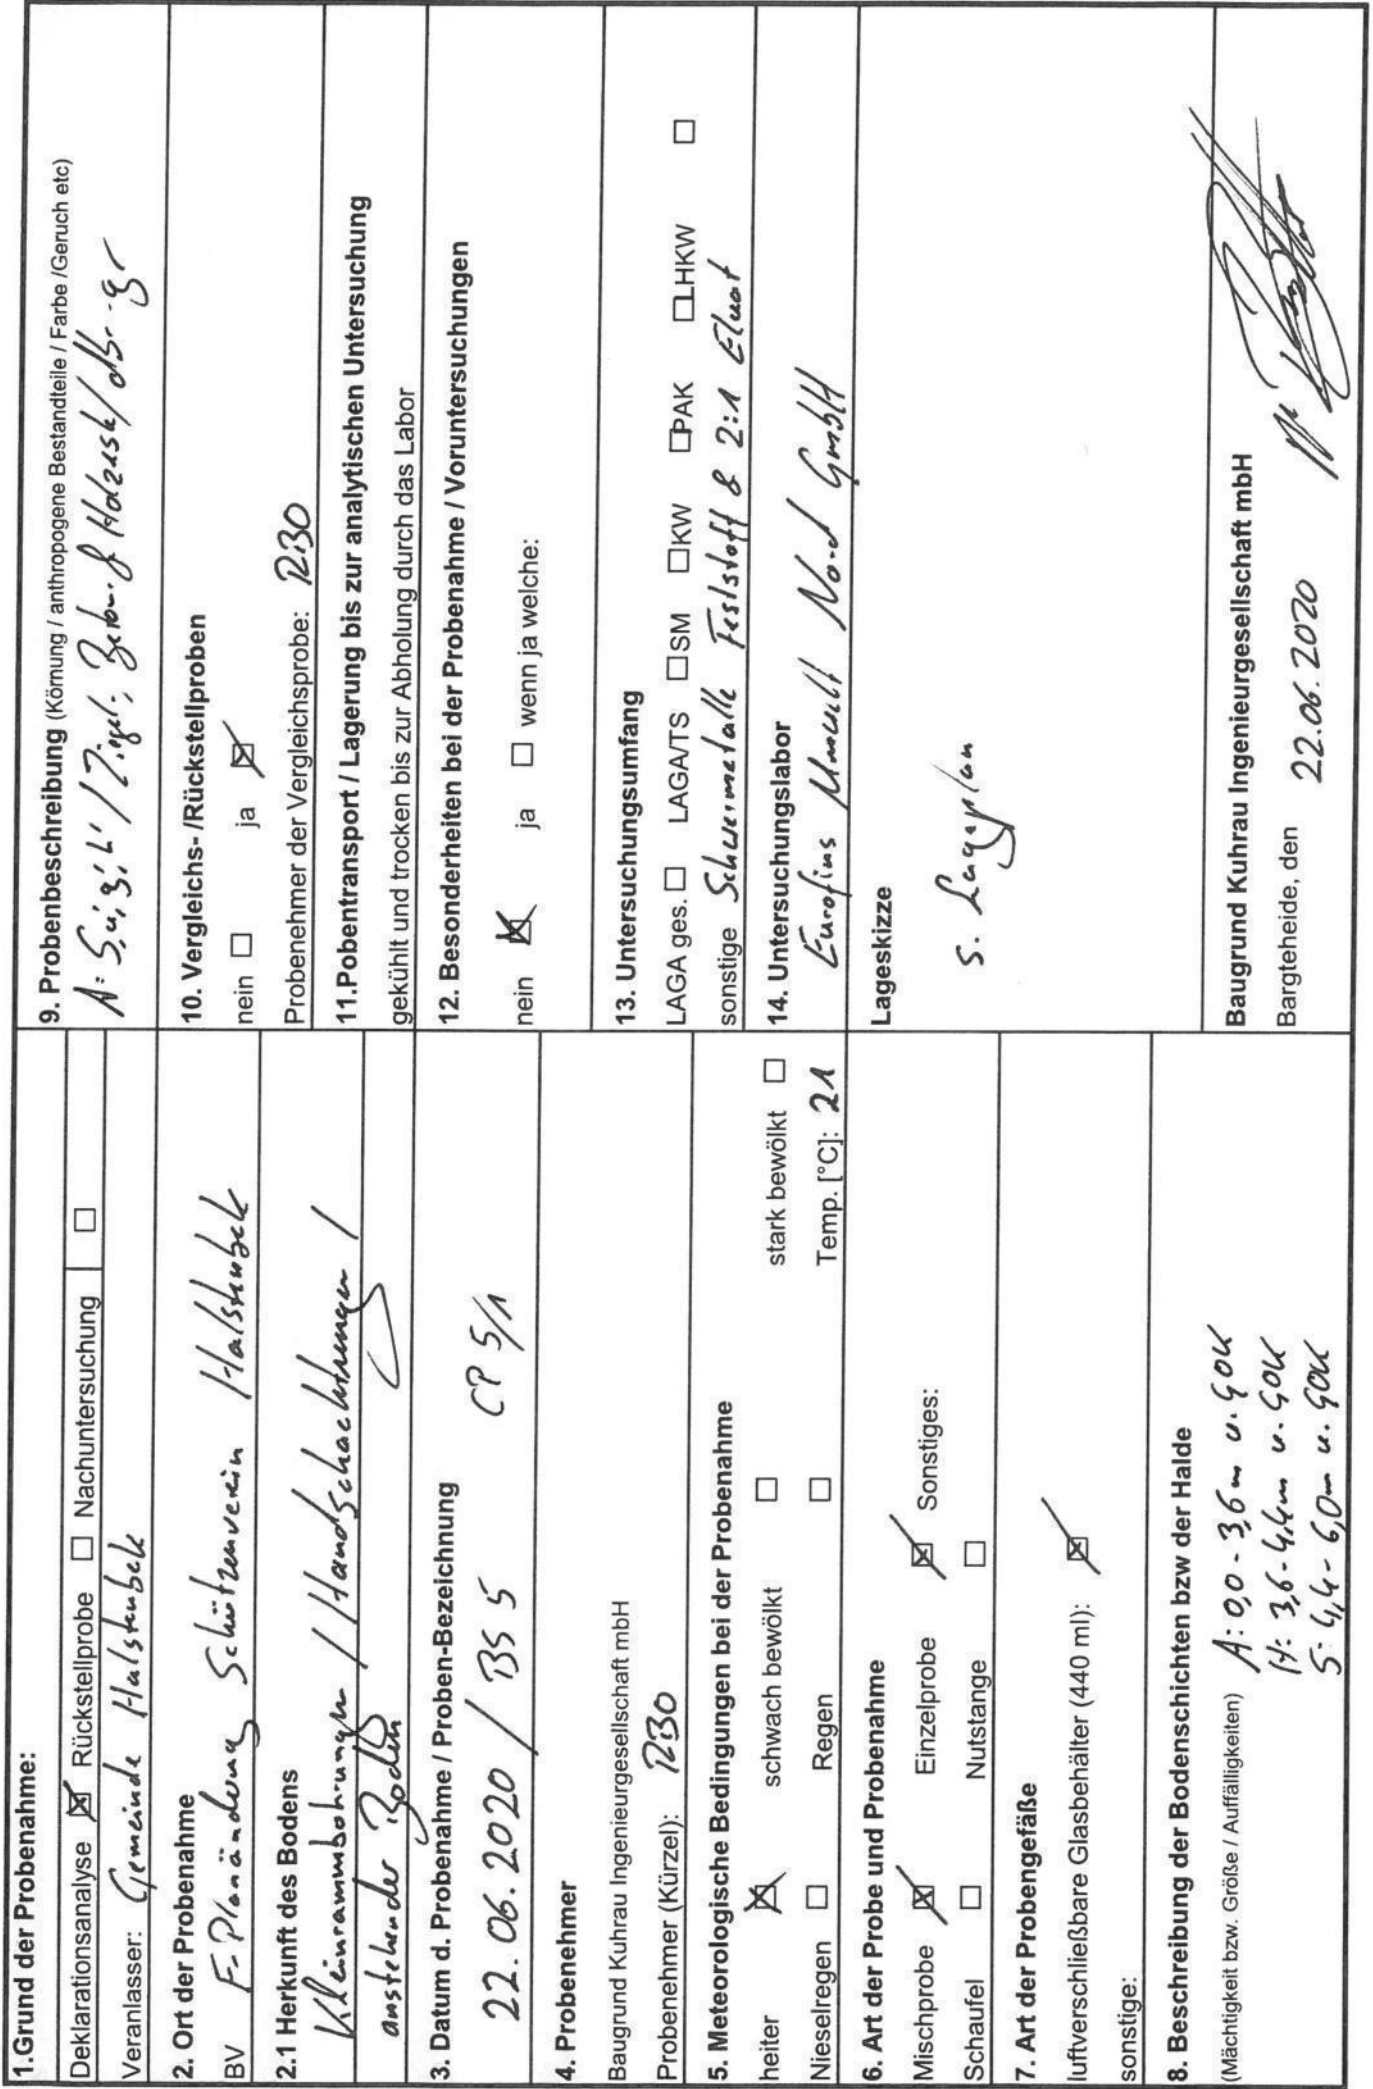 1.Grund der Probenahme:
Deklarationsanalyse ☒ Rückstellprobe ☐ Nachuntersuchung ☐
Veranlasser: Gemeinde Halstenbek
2. Ort der Probenahme
BV F-Planänderung Schützenverein Halstenbek
2.1 Herkunft des Bodens
Kleinrammbohrungen / Handschachtungen /
anstehender Boden
3. Datum d. Probenahme / Proben-Bezeichnung
22.06.2020 / BS 5 CP 5/1
4. Probenehmer
Baugrund Kuhrau Ingenieurgesellschaft mbH
Probenehmer (Kürzel):
5. Meteorologische Bedingungen bei der Probenahme
heiter ☒ schwach bewölkt ☐ stark bewölkt ☐
Nieselregen ☐ Regen ☐ Temp. [°C]: 21
6. Art der Probe und Probenahme
Mischprobe ☒ Einzelprobe ☒ Sonstiges:
Schaufel ☐ Nutstange ☐
7. Art der Probengefäße
luftverschließbare Glasbehälter (440 ml): ☒
sonstige:
8. Beschreibung der Bodenschichten bzw der Halde
(Mächtigkeit bzw. Größe / Auffälligkeiten) A: 0,0 - 3,6m u. GOK
H: 3,6 - 4,4m u. GOK
S: 4,4 - 6,0m u. GOK
9. Probenbeschreibung (Körnung / anthropogene Bestandteile / Farbe /Geruch etc)
A: S, u', g', h' / Ziegel, Beton
10. Vergleichs- /Rückstellproben
nein ☐ ja ☒
Probenehmer der Vergleichsprobe:
11.Pobentransport / Lagerung bis zur analytischen Untersuchung
gekühlt und trocken bis zur Abholung durch das Labor
12. Besonderheiten bei der Probenahme / Voruntersuchungen
nein ☒ ja ☐ wenn ja welche:
13. Untersuchungsumfang
LAGA ges. ☐ LAGA/TS ☐ SM ☐ KW ☐ PAK ☐ LHKW ☐
sonstige Schwermetalle Feststoff & 2:1 Eluat
14. Untersuchungslabor
Eurofins Umwelt Nord GmbH
Lageskizze
s. Lageplan
Baugrund Kuhrau Ingenieurgesellschaft mbH
Bargteheide, den 22.06.2020